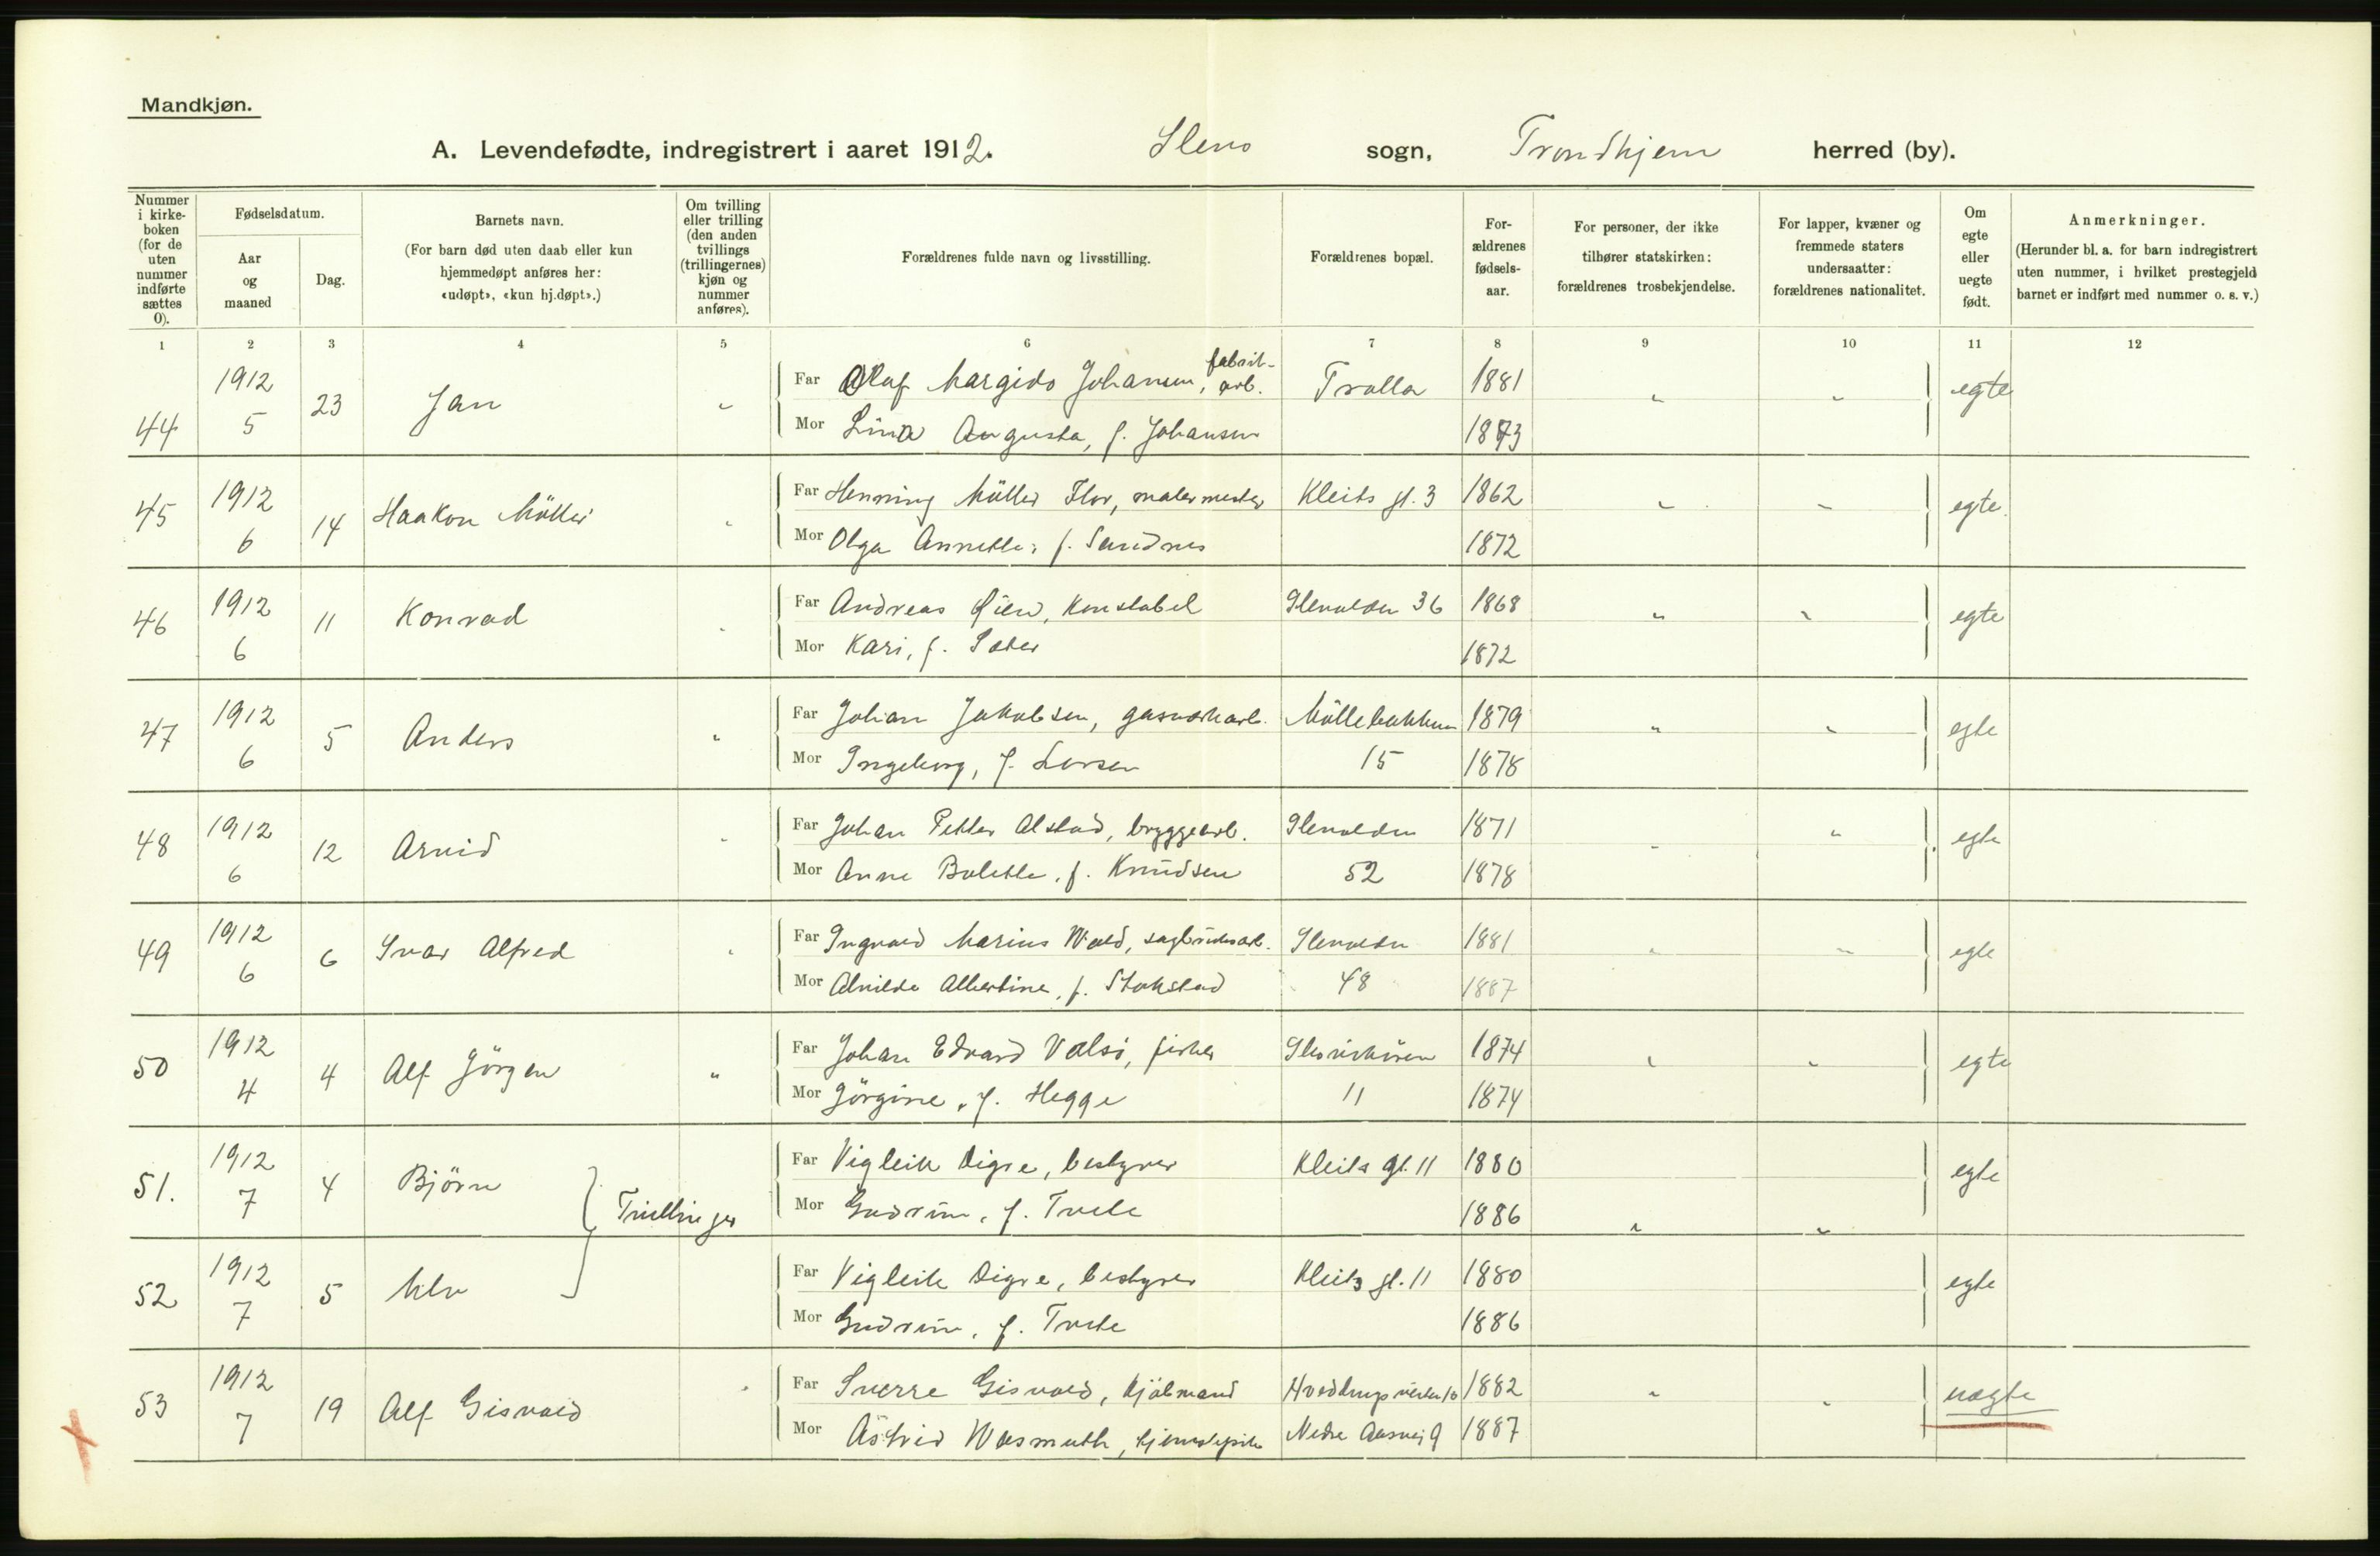 Mandkjøn.
A. Levendefødte, indregistrert i aaret 1912. Ilens sogn, Trondhjem herred (by).
Nummer i kirke-boken (for de uten nummer indførte sættes 0).
Fødselsdatum.
Aar og maaned
Dag.
Barnets navn.
(For barn død uten daab eller kun hjemmedøpt anføres her: «udøpt», «kun hj.døpt».)
Om tvilling eller trilling (den anden tvillings (trillingernes) kjøn og nummer anføres).
Forældrenes fulde navn og livsstilling.
Forældrenes bopæl.
For-ældrenes fødsels-aar.
For personer, der ikke tilhører statskirken: forældrenes trosbekjendelse.
For lapper, kvæner og fremmede staters undersaatter: forældrenes nationalitet.
Om egte eller uegte født.
Anmerkninger.
(Herunder bl. a. for barn indregistrert uten nummer, i hvilket prestegjeld barnet er indført med nummer o. s. v.)
1 2 3 4 5 6 7 8 9 10 11 12
44 1912 5 23 Jan " Far Olaf Margido Johansen, fabrik-arb. Trolla 1881 " " egte
Mor Lina Augusta, f. Johansen 1873
45 1912 6 14 Haakon Müller " Far Henning Müller Flor, malermester Kleits gt. 3 1862 " " egte.
Mor Olga Annette, f. Sandnes 1872
46 1912 6 11 Konrad " Far Andreas Øien, Konstabel Ilevolden 36 1868 " " egte
Mor Kari, f. Sæter 1872
47 1912 6 5 Anders " Far Johan Jakobsen, gasverkarb. Möllebakken 1879 " " egte
Mor Ingeborg, f. Larsen 15 1878
48 1912 6 12 Arvid " Far Johan Petter Alstad, bryggearb. Ilevolden 1871 " " egte
Mor Anne Bolette, f. Knudsen 52 1878
49 1912 6 6 Ivar Alfred " Far Ingvald Marius Wold, sagbruksarb. Ilevolden 1881 " " egte
Mor Alvilde Albertine, f. Stokstad 48 1887
50 1912 4 4 Alf Jörgen " Far Johan Edvard Valsö, fisker 1874 " " egte
Mor Jörgine, f. Hegge 11 1874
51. 1912 7 4 Björn Far Vigleik Digre, bestyrer Kleits gt. 11 1880 egte
Tvillinger Mor Gudrun, f. Tvete 1886 " "
52 1912 7 5 Far Vigleik Digre, bestyrer Kleits gt. 11 1880 egte
Mor Gudrun, f. Tvete 1886
53 1912 7 19 Alf Gisvold " Far Sverre Gisvold, kjöbmand 1882 " " uegte
Mor Astrid Wasmuth, tjenestepike Nedre 9 1887